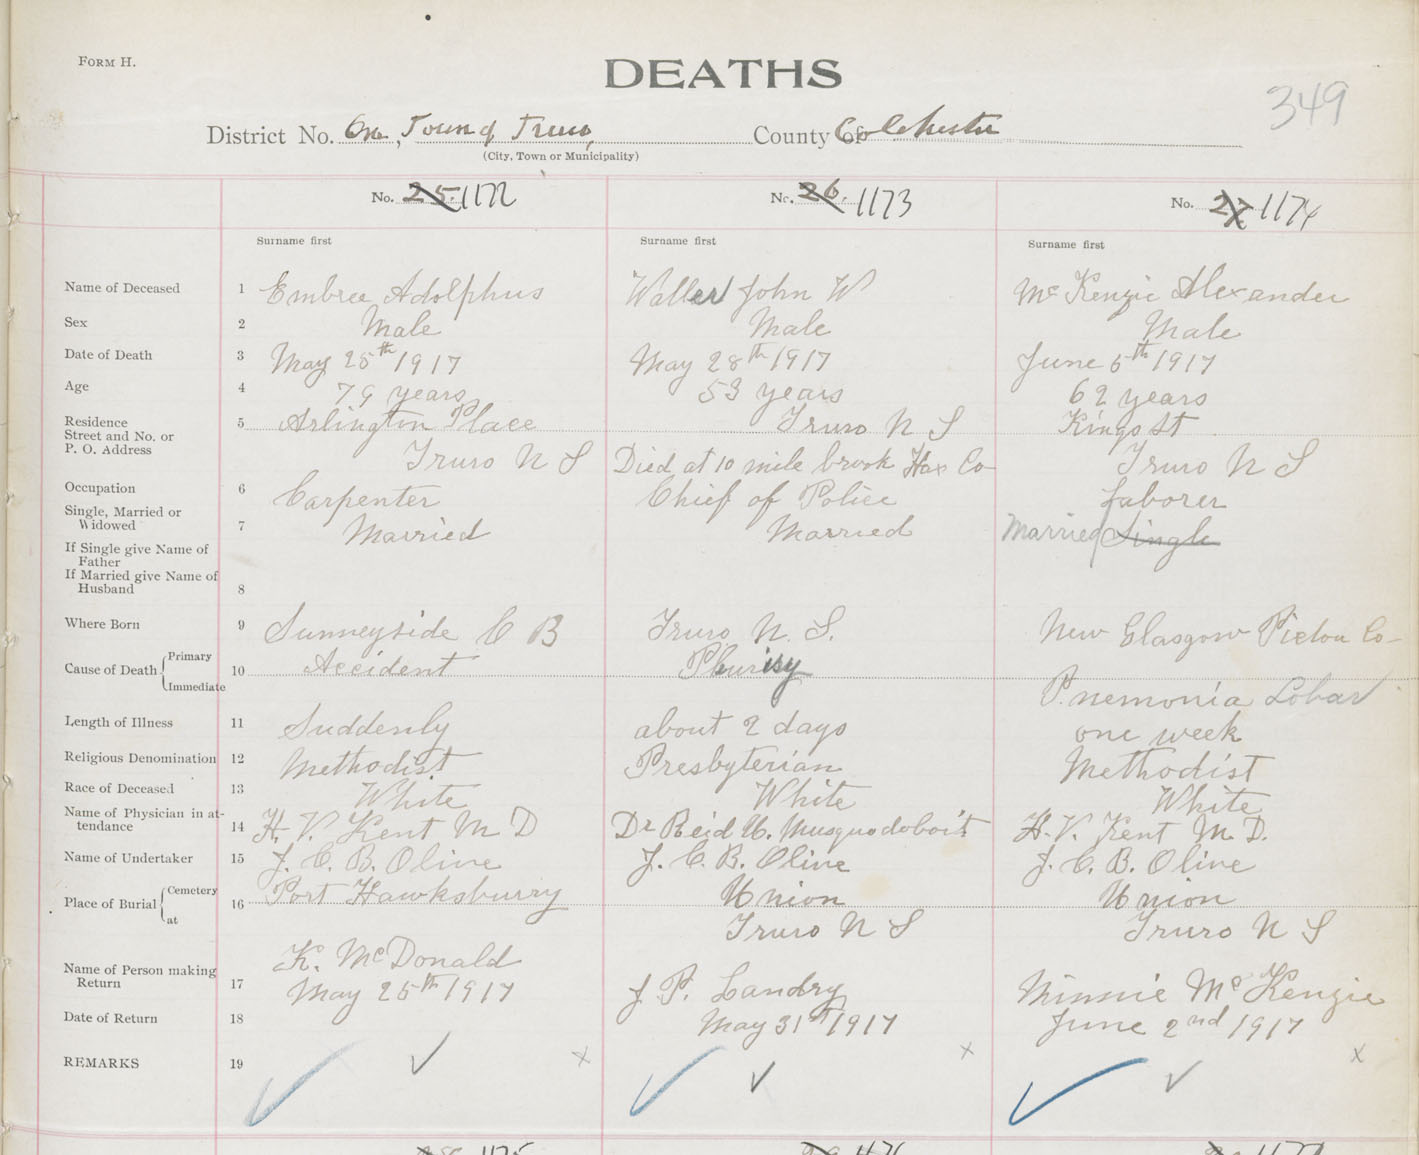 FORM H.
DEATHS
349
District No. One, Town of Truro, County of Colchester
(City, Town or Municipality)
No. 25. 1172 No. 26. 1173 No. 27 1174
Surname first Surname first Surname first
Name of Deceased 1 Embree Adolphus Waller John W McKenzie Alexander
Sex 2 Male Male Male
Date of Death 3 May 25th 1917 May 28th 1917 June 5th 1917
Age 4 79 years 53 years 62 years
Residence 5 Arlington Place Truro N S Kings St
Street and No. or
P. O. Address Truro N S Died at 10 mile brook Hax Co Truro N S
Occupation 6 Carpenter Chief of Police Laborer
Single, Married or
Widowed 7 Married Married Married Single
If Single give Name of
Father
If Married give Name of
Husband 8
Where Born 9 Sunneyside C B Truro N. S. New Glasgow Pictou Co
Cause of Death Primary 10 Accident Plurisy
Immediate P.nemonia Lobar
Length of Illness 11 Suddenly about 2 days one week
Religious Denomination 12 Methodist Presbyterian Methodist
Race of Deceased 13 White White White
Name of Physician in at-
tendance 14 H. V. Kent M D Dr Reid U. Musquodoboit H. V. Kent M. D.
Name of Undertaker 15 J. C. B. Olive J. C. B. Olive J. C. B. Olive
Place of Burial Cemetery 16 Port Hawksburry Union Union
at Truro N S Truro N S
K. McDonald
Name of Person making
Return 17 May 25th 1917 J. P. Landry Minnie McKenzie
Date of Return 18 May 31st 1917 June 2nd 1917
REMARKS 19 x x x